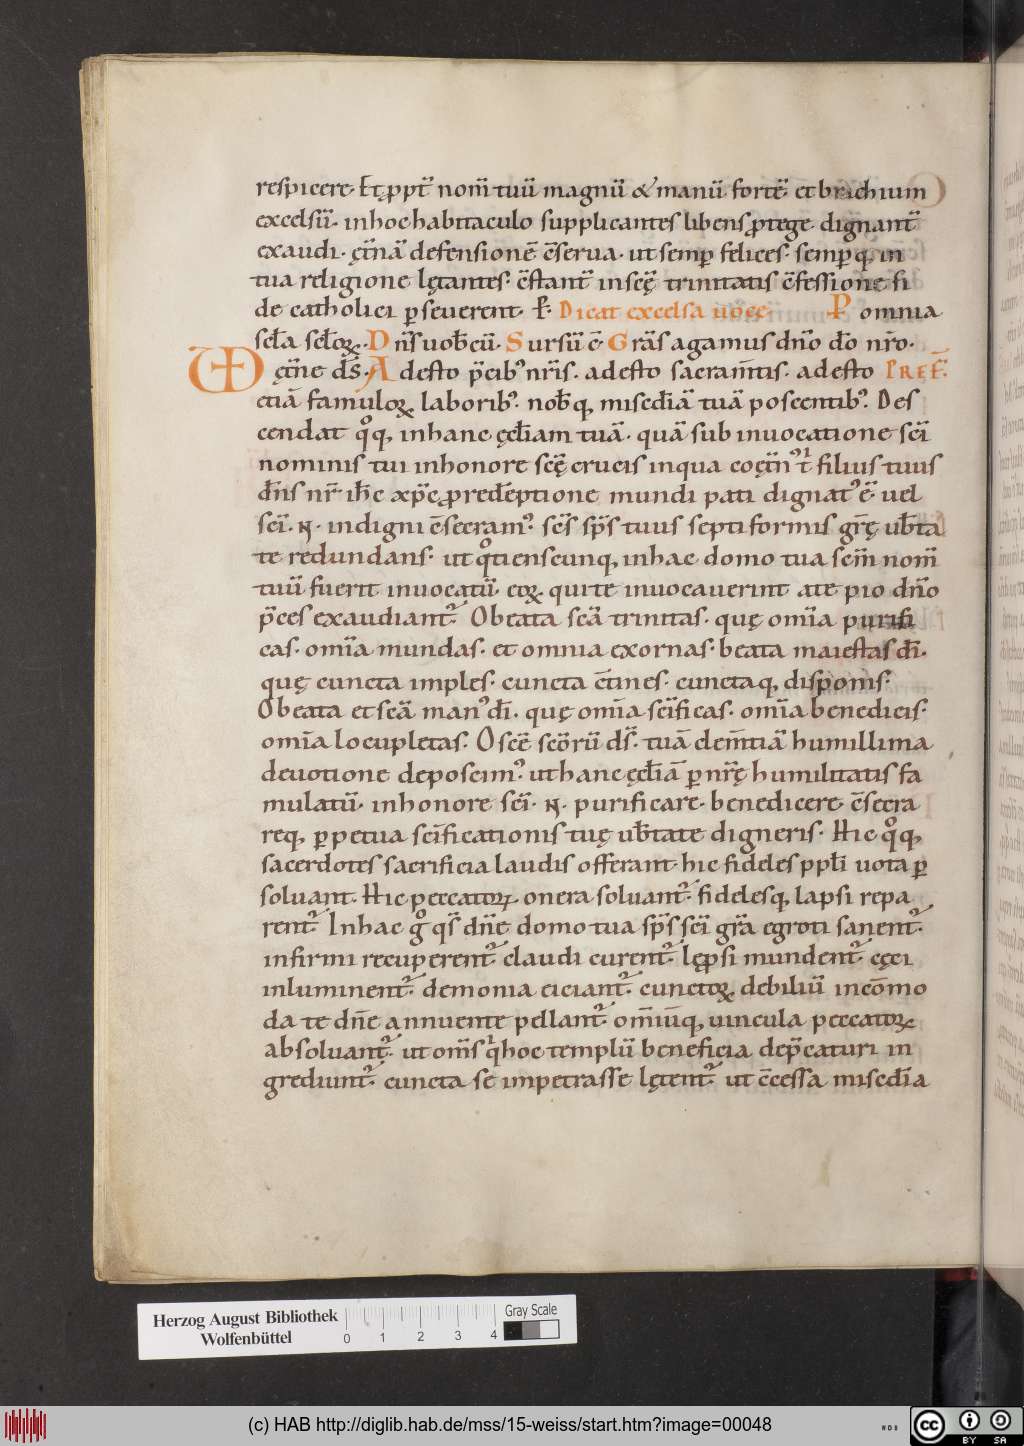 respicere. Et ꝓpt̄ nom̄ tuū magnū & manū fortē et brachium
excelsū. in hoc habitaculo supplicantes libens ꝓtege. dignant̄
exaudi. ęt̄nā defensionē c̄serua. ut semꝑ felices. semꝑq; in
tua religione lętantes. c̄stant̄ in scę̄ trinitatis c̄fessione fi
de catholici ꝑseuerent. ꝑ. Dicat excelsa uoce. P omnia
scl̄a scl̄oꝝ. Dn̄s uob̄cū. Sursū c̄. Grās agamus dn̄o d̄o nr̄o.
VD ęt̄ne d̄s. Adesto p̄cibꝰ nr̄is. adesto sacram̄tis. adesto PREF̄.
etiā famuloꝝ laboribꝰ. nob̄q; misc̄diā tuā poscentibꝰ. Des
cendat q̊q; in hanc ęccl̄iam tuā. quā sub inuocatione sc̄i
nominis tui in honore scę̄ crucis in qua coęt̄nꝰ t̄ filius tuus
dn̄s nr̄ ih̄c xp̄c ꝓ redēptione mundi pati dignatꝰ ē. uel
sc̄i .N. indigni c̄secramꝰ. sc̄s sp̄s tuus septiformis gr̄ę ub̄ta
te redundans. ut q̊tienscunq; in hac domo tua sc̄m nom̄
tuū fuerit inuocatū. eoꝝ qui te inuocauerint a te pio dn̄o
p̄ces exaudiant̄. O beata sc̄a trinitas. quę om̄ia purifi
cas. om̄ia mundas. et omnia exornas. beata maiestas d̄i.
quę cuncta imples. cuncta c̄tines. cunctaq; disponis.
O beata et sc̄a manꝰ d̄i. quę om̄ia sc̄ificas. om̄ia benedicis.
om̄ia locupletas. O sc̄e sc̄orū d̄s. tuā clem̄tiā humillima
deuotione deposcimꝰ. ut hanc ęccl̄iā ꝑ nr̄ę humilitatis fa
mulatū. in honore sc̄i .N. purificare. benedicere c̄secra
req; ꝑpetua sc̄ificationis tuę ub̄tate digneris. Hic q̊q;
sacerdotes sacrificia laudis offerant. hic fideles ppl̄i uota ꝑ
soluant. Hic peccatoꝝ onera soluant̄. fidelesq; lapsi repa
rent̄. In hac g̊ qs̄ dn̄e domo tua sp̄s sc̄i gr̄a egroti sanent̄.
infirmi recuperent̄. claudi curent̄. lęꝓsi mundent̄. cęci
inluminent̄. demonia eiciant̄. cunctoꝝ debiliū incōmo
da te dn̄e annuente pellant̄. om̄iūq; uincula peccatoꝝ
absoluant̄. ut om̄s q̄ hoc templū beneficia dep̄caturi in
grediunt̄. cuncta se impetrasse lętent̄. ut c̄cessa misc̄dīa
Herzog August Bibliothek
Wolfenbüttel
0 1 2 3 4
Gray Scale
(c) HAB http://diglib.hab.de/mss/15-weiss/start.htm?image=00048
cc BY SA